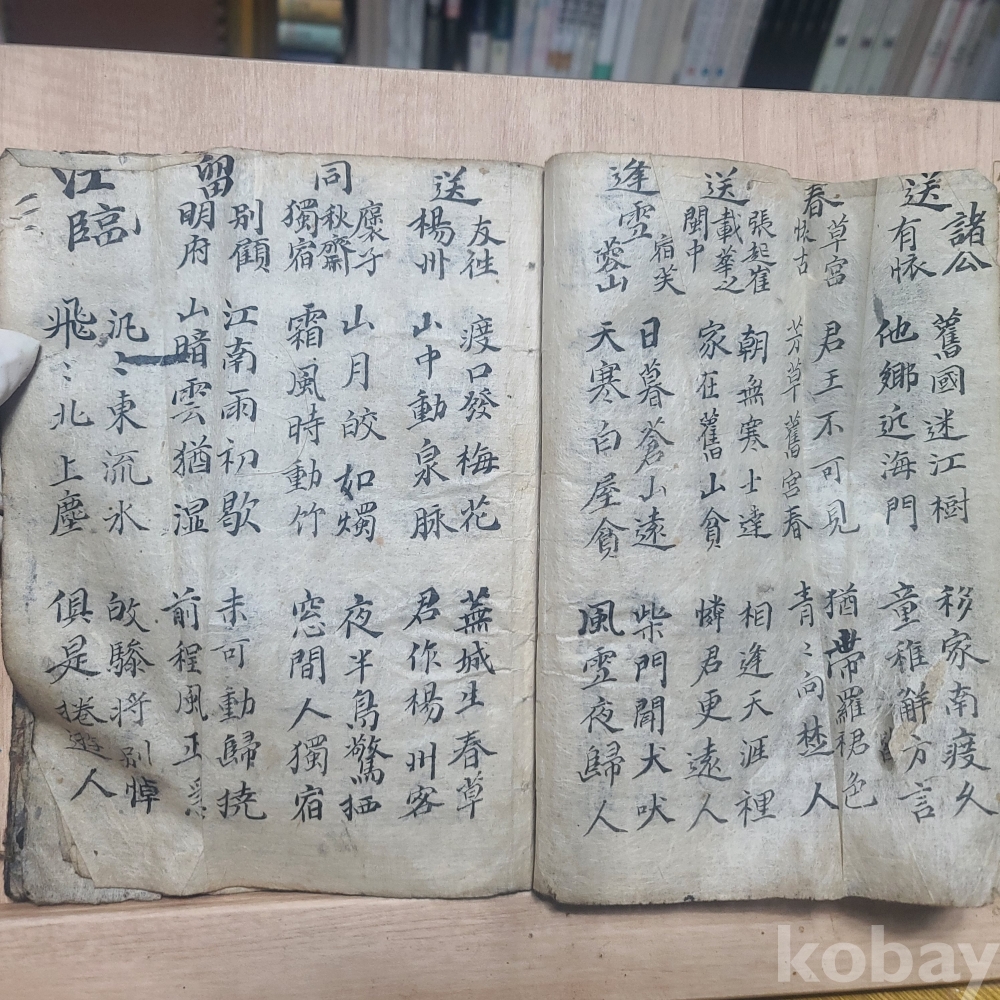 送
諸公
有懷
舊國迷江樹 移家南渡久
他鄉近海門 童稚解方言
春
草宮
懷古
君王不可見 猶帶羅裙色
芳草舊宮春 青〻向楚人
送
張起崔
載華之
閩中
朝無寒士達 相逢天涯裡
家在舊山貧 憐君更遠人
逢雪
宿芙
蓉山
日暮蒼山遠 柴門聞犬吠
天寒白屋貧 風雪夜歸人
送
友往
楊州
渡口發梅花 蕪城生春草
山中動泉脉 君作楊州客
同
褱子
秋齋
獨宿
山月皎如燭 夜半鳥驚栖
霜風時動竹 窓間人獨宿
留
別顧
明府
江南雨初歇 未可動歸撓
山暗雲猶湿 前程風正
江臨
汎〻東流水 驂將別悼
飛〻北上塵 俱是捲遊人
kobay